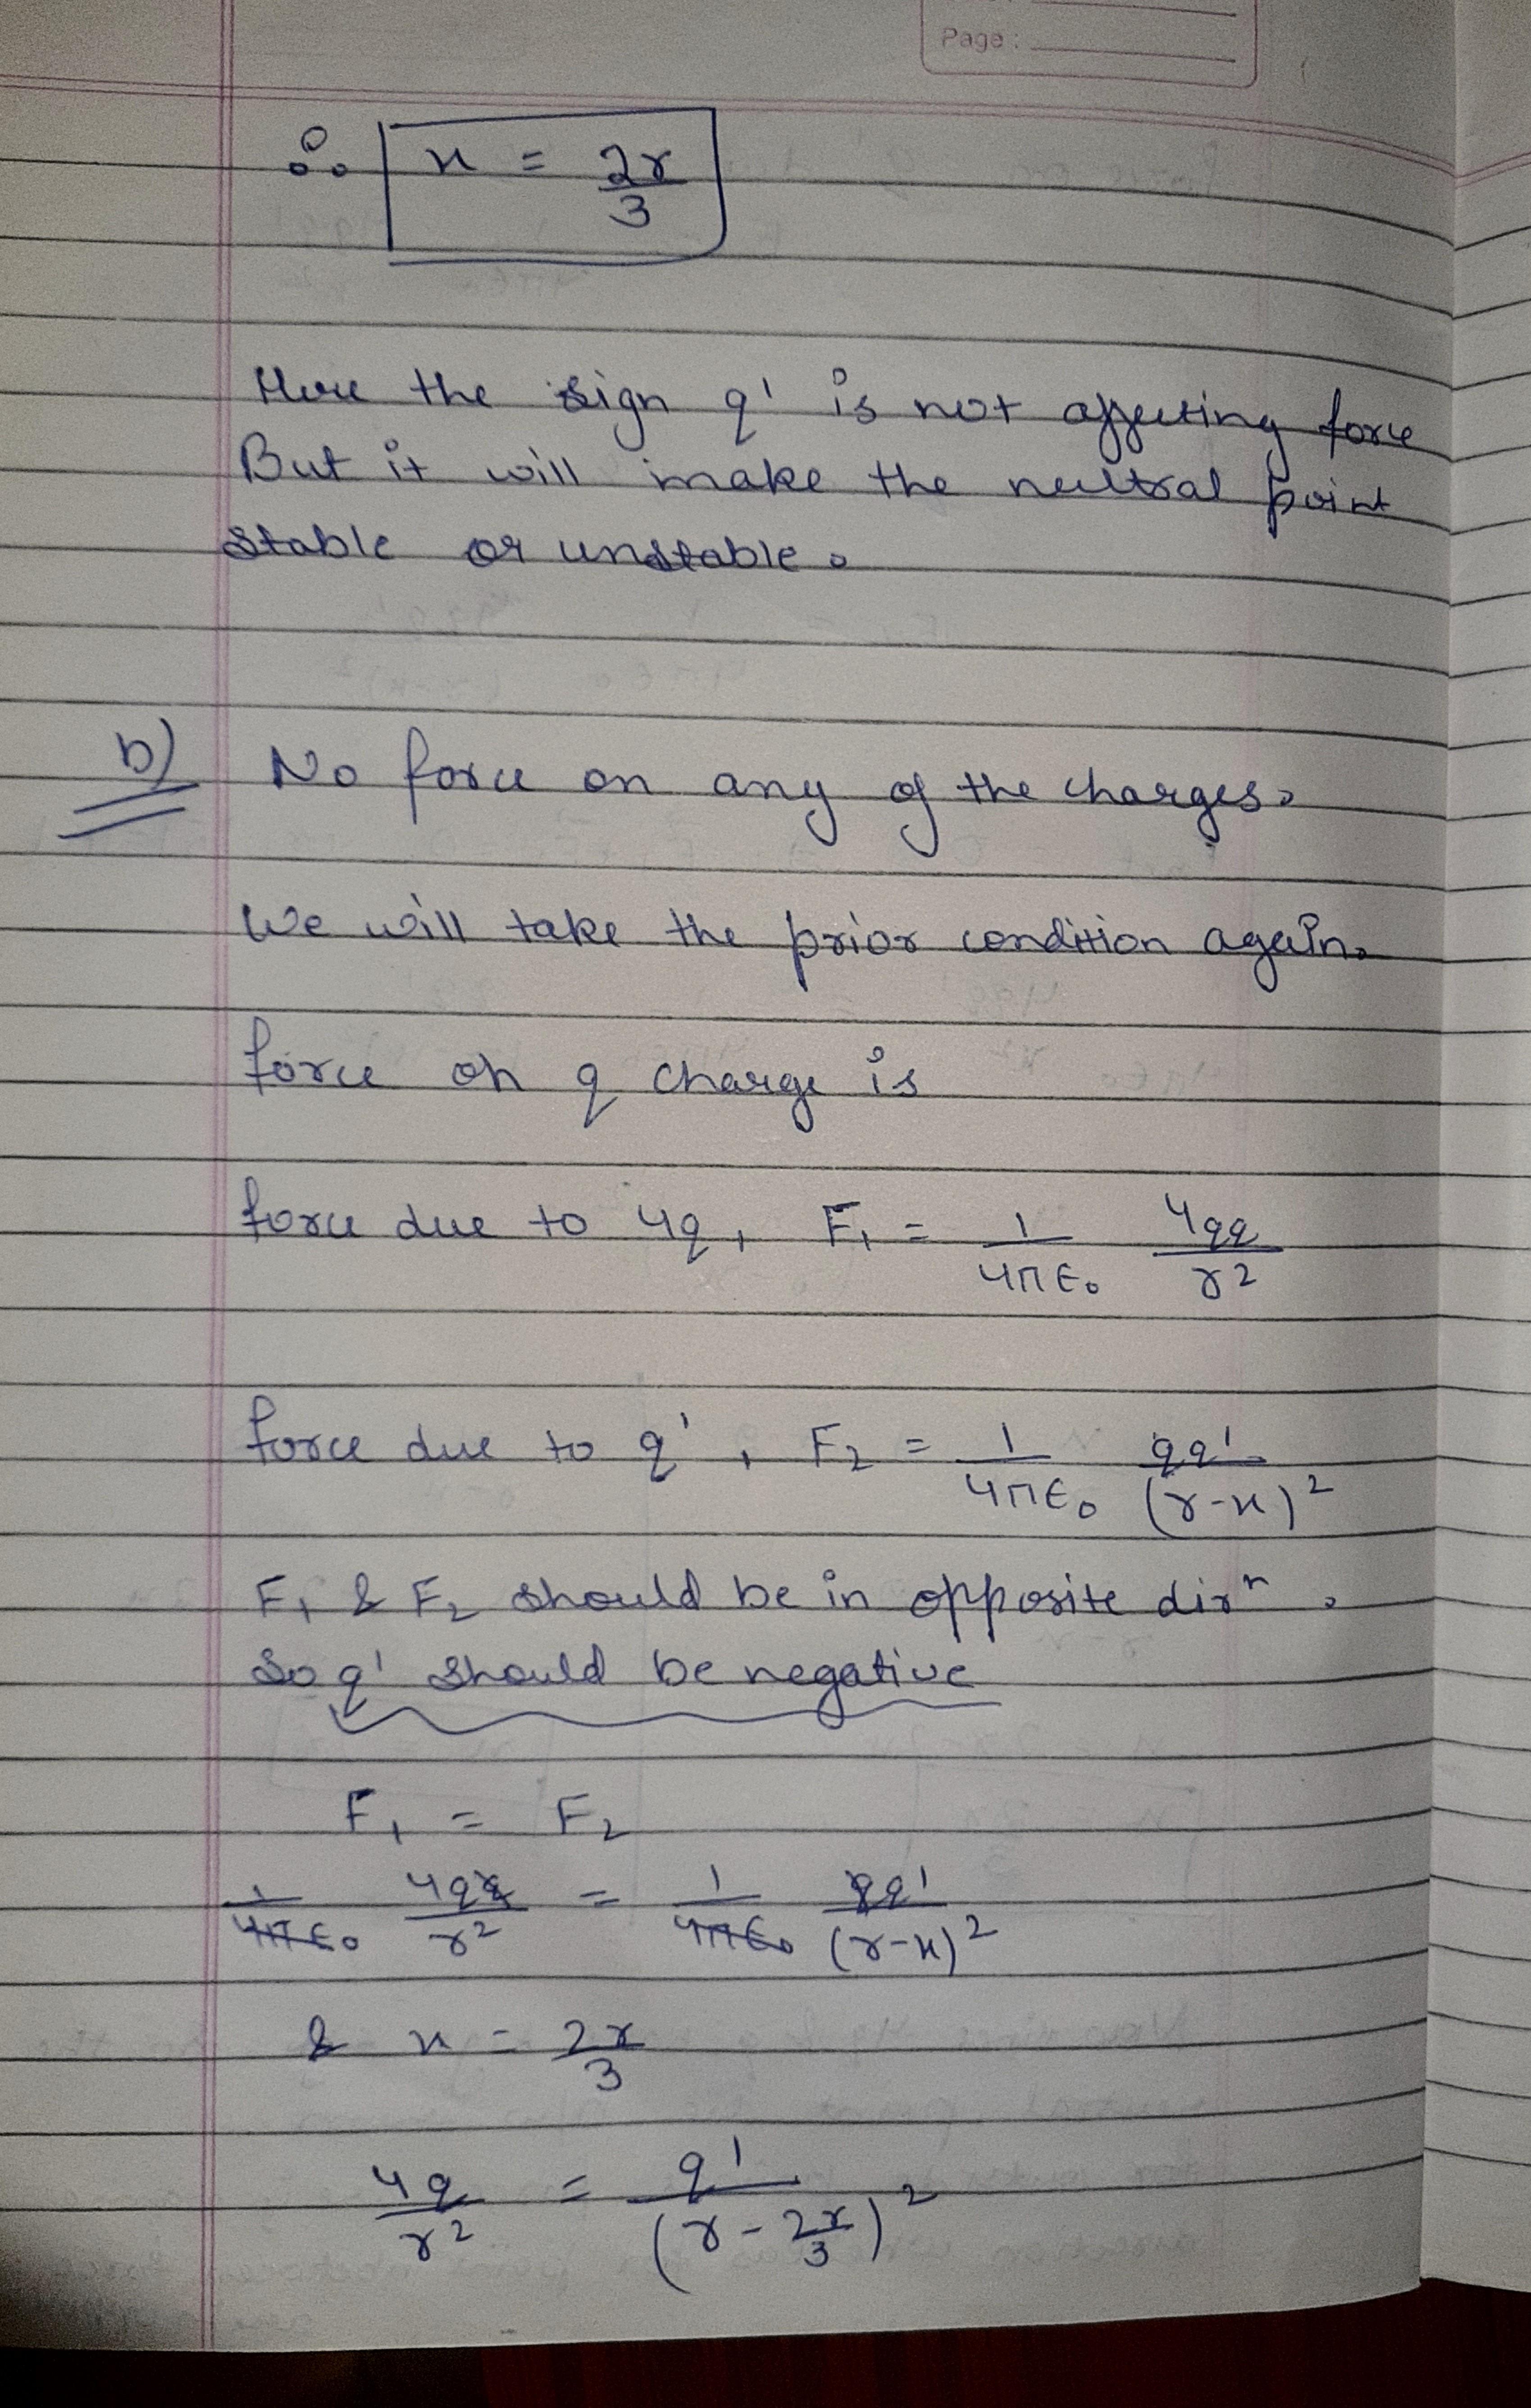 Page :
∴ x = 2r/3
Here the sign q' is not affecting force
But it will make the neutral point
stable or unstable.
b) No force on any of the charges.
We will take the prior condition again.
force on q charge is
force due to 4q, F₁ = 1/4πε₀ 4qq/r²
force due to q', F₂ = 1/4πε₀ qq'/(r-x)²
F₁ & F₂ should be in opposite dirⁿ.
So q' should be negative
F₁ = F₂
1/4πε₀ 4qq/r² = 1/4πε₀ qq'/(r-x)²
& x = 2r/3
4q/r² = q'/(r - 2r/3)²